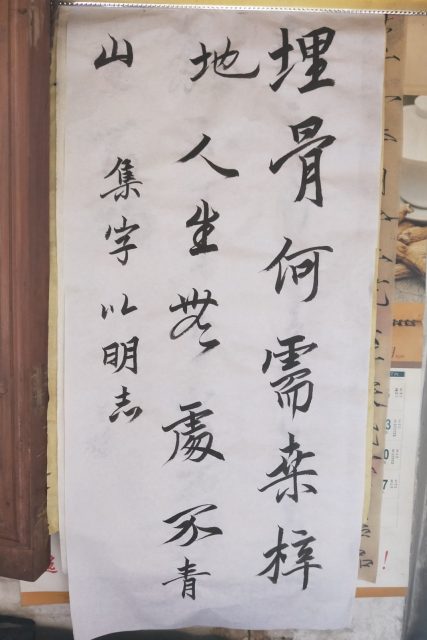 埋骨何需桒梓
地人生無處不青
山
集字以明志